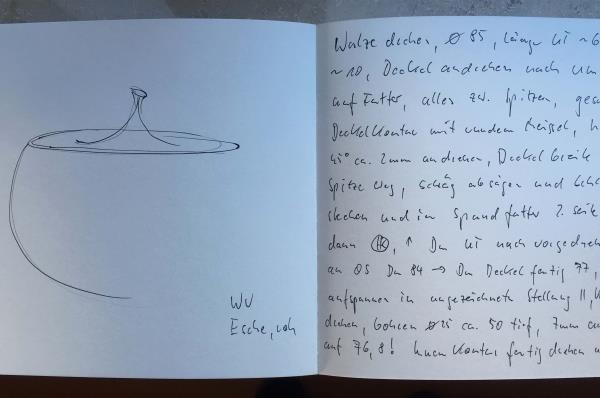 WV
Esche, roh
Walze drehen, Ø 85, Länge UT ~6
~10, Deckel andrehen nach
auf Futter, alles zw. Spitzen,
Deckelkontur mit rundem Meissel,
45° ca. 2mm andrehen, Deckel
Spitze weg, schräg absägen und
stechen und in Spundfutter 2. Seite
dann HK, ↑ Dm UT nach
an OS Dm 84 → Dm Deckel fertig 77,
aufspannen in angezeichnete Stellung II,
drehen, bohren Ø25 ca. 50 tief, 7mm
auf 76,8! Innen Kontur fertig drehen